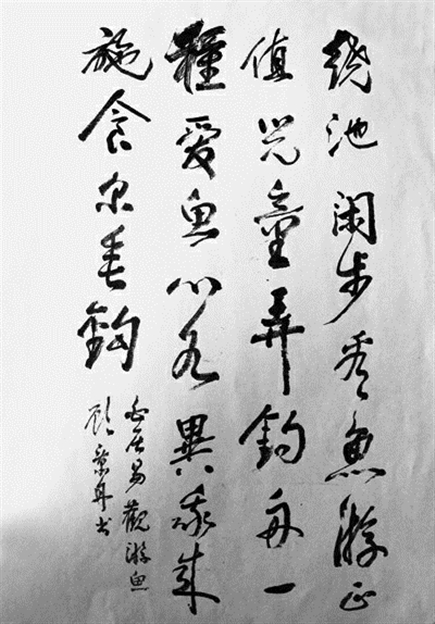 绕池闲步看鱼游正
值兒童弄钓舟一
種愛鱼心各異我来
施食尔垂钩
白居易觀游鱼
顾景舟书